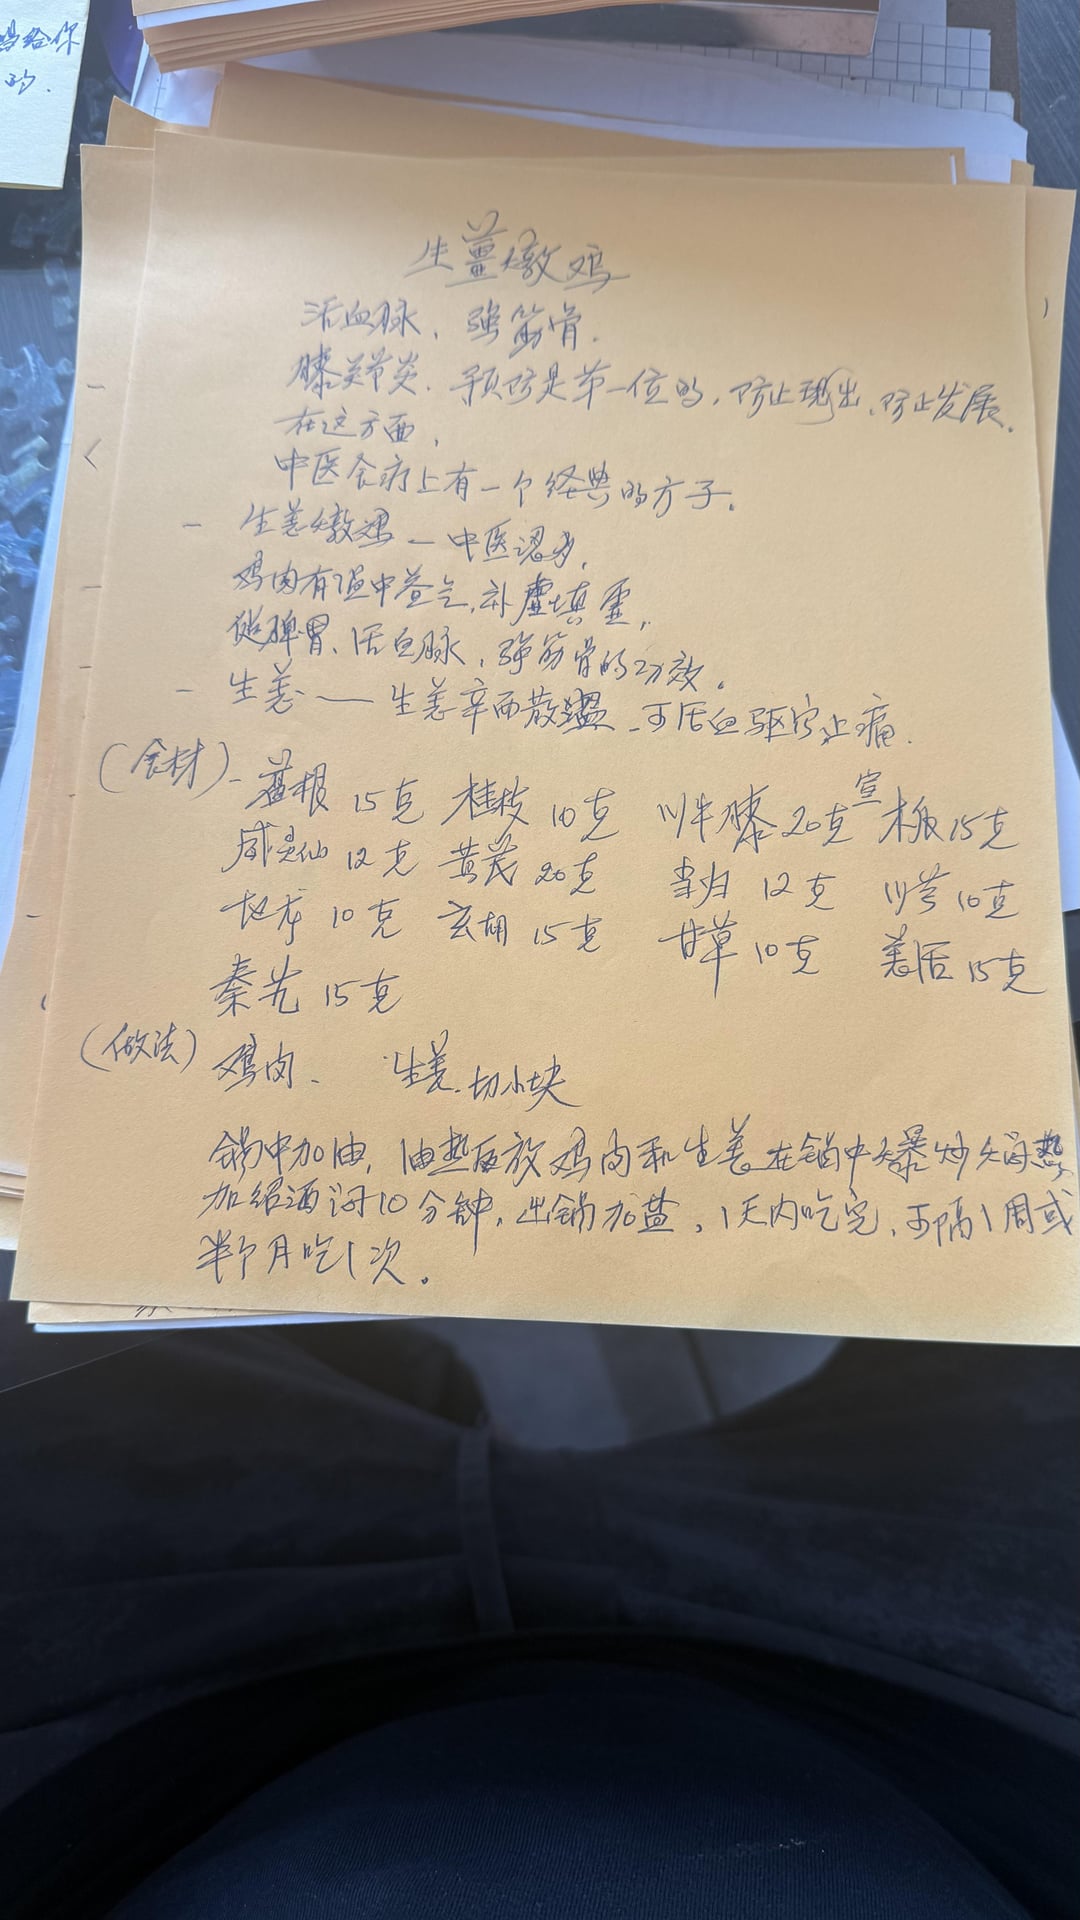 妈给你
的.
生薑燉鸡
活血脉、强筋骨.
膝关节炎.预防是第一位的,防止现出、防止发展.
在这方面,
中医食疗上有一个经典的方子.
- 生姜燉鸡 — 中医认为,
鸡肉有温中益气,补虚填
健脾胃、活血脉,强筋骨的功效。
- 生姜 —— 生姜辛而散温 可活血驱寒止痛.
(食材) - 葛根 15克 桂枝 10克 川牛膝 20克 宣木瓜 15克
威灵仙 12克 黄芪 20克 当归 12克 川芎 10克
地龙 10克 玄胡 15克 甘草 10克 羌活 15克
秦艽 15克
(做法) 鸡肉、 生姜.切小块
锅中加油,油热后放鸡肉和生姜在锅中爆炒焖熟
加绍酒焖10分钟,出锅加盐,1天内吃完,可隔1周或
半个月吃1次。